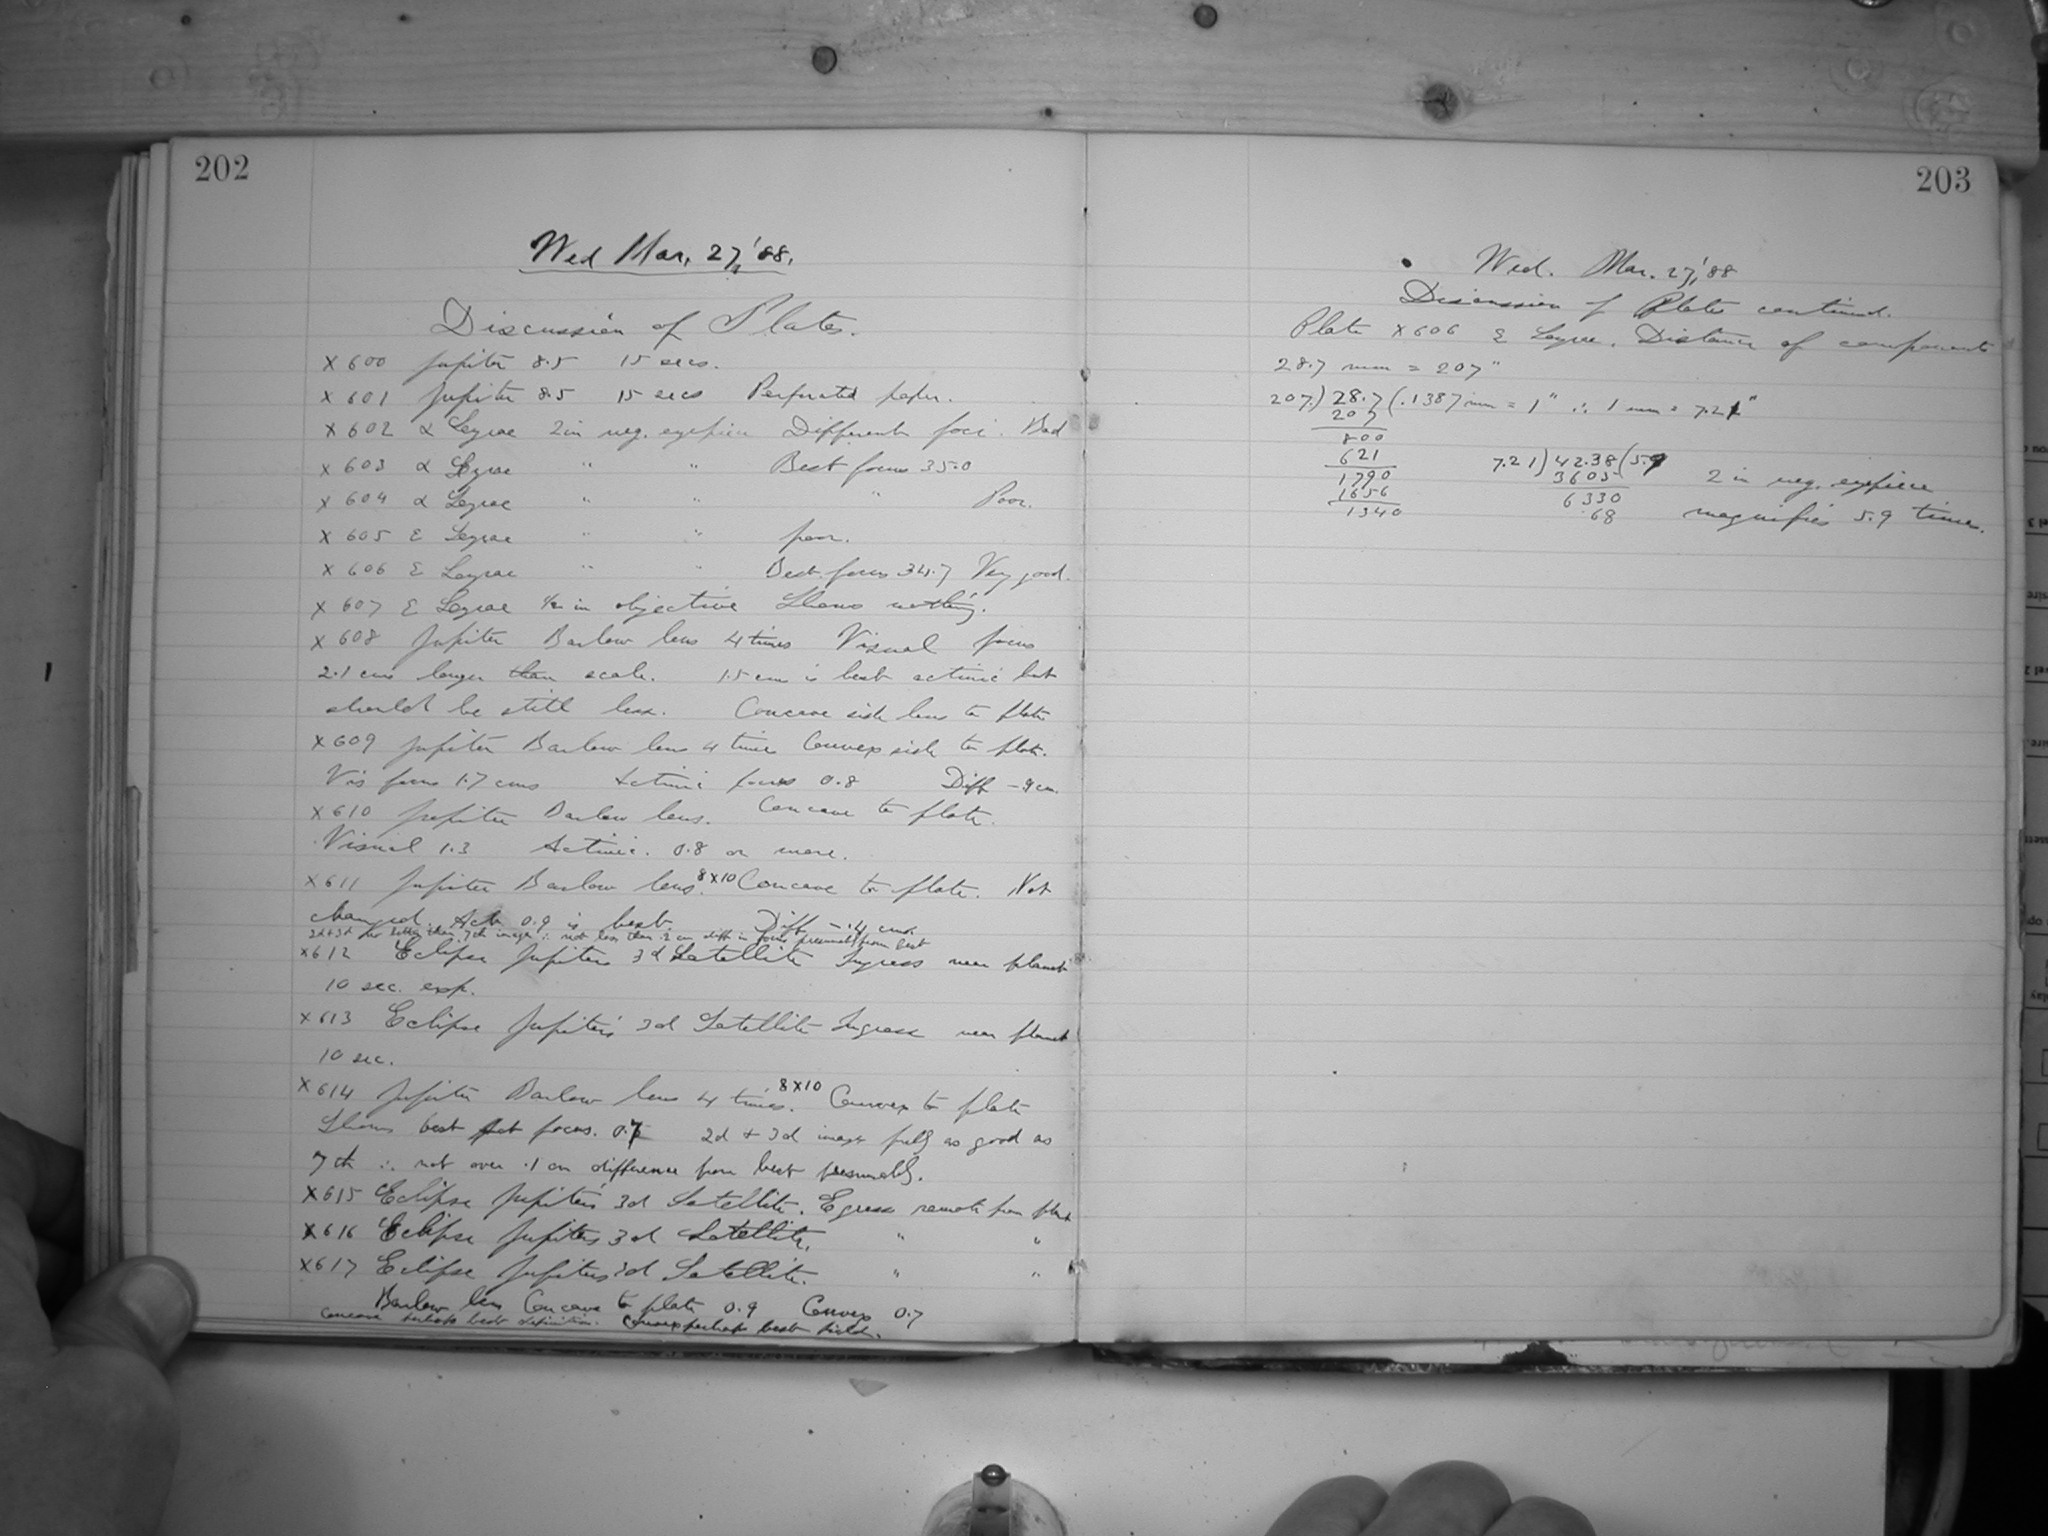 202
Wed Mar. 27, '88.
Discussion of Plates.
X 600 Jupiter 8.5 15 secs.
X 601 Jupiter 8.5 15 secs Perforated paper.
X 602 α Lyrae 2 in neg. eyepiece Different foci. Bad
X 603 α Lyrae " " Best focus 35.0
X 604 α Lyrae " " " Poor.
X 605 ε Lyrae " " poor.
X 606 ε Lyrae " " Best focus 34.7 Very good.
X 607 ε Lyrae in objective Shows nothing.
X 608 Jupiter Barlow lens 4 times Visual focus
2.1 cms longer than scale. 1.5 cm is best actinic but
should be still less. Concave side lens to plate
X 609 Jupiter Barlow lens 4 times Convex side to plate.
Vis focus 1.7 cms Actinic focus 0.8 Diff - .9 cm.
X 610 Jupiter Barlow lens. Concave to plate.
Visual 1.3 Actinic. 0.8 or more.
X 611 Jupiter Barlow lens. 8X10 Concave to plate. Not
changed. Act. 0.9 is best. Diff - .4 cms.
2d + 3d better than 7th image ∴ not less than .2 cm diff in focus presumed from best
X 612 Eclipse Jupiter's 3d Satellite Ingress near planet
10 sec. exp.
X 613 Eclipse Jupiter's 3d Satellite Ingress near planet
10 sec.
X 614 Jupiter Barlow lens 4 times. 8X10 Convex to plate
Shows best act focus. 0.7 2d + 3d images fully as good as
7th ∴ not over .1 cm difference from best presumably.
X 615 Eclipse Jupiter's 3d Satellite. Egress remote from plnt
X 616 Eclipse Jupiter's 3d Satellite. " "
X 617 Eclipse Jupiter's 3d Satellite. " "
Barlow lens Concave to plate 0.9 Convex 0.7
Concave perhaps best definition. Convex perhaps best field.
203
Wed. Mar. 27, '88
Discussion of Plates continued.
Plate X 606 ε Lyrae. Distance of components
28.7 mm = 207"
207.) 28.7 (.1387 mm = 1" ∴ 1 mm = 7.21"
207
800
621
1790
1656
1340
7.21) 42.38 (5.9
3605
6330
68
2 in neg. eyepiece
magnifies 5.9 times.